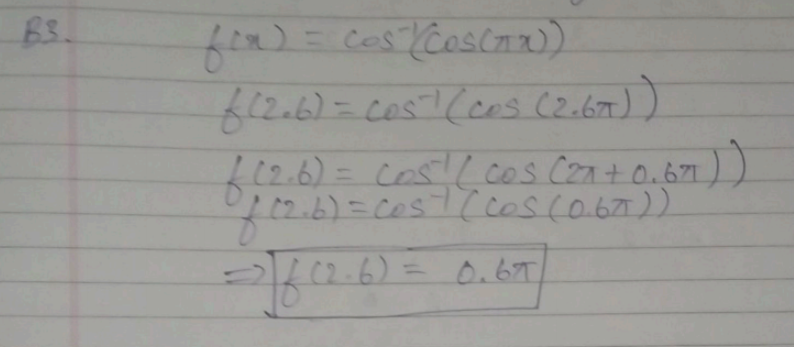 B3. f(x) = cos⁻¹(cos(πx))
f(2.6) = cos⁻¹(cos(2.6π))
f(2.6) = cos⁻¹(cos(2π+0.6π))
f(2.6) = cos⁻¹(cos(0.6π))
⇒ f(2.6) = 0.6π